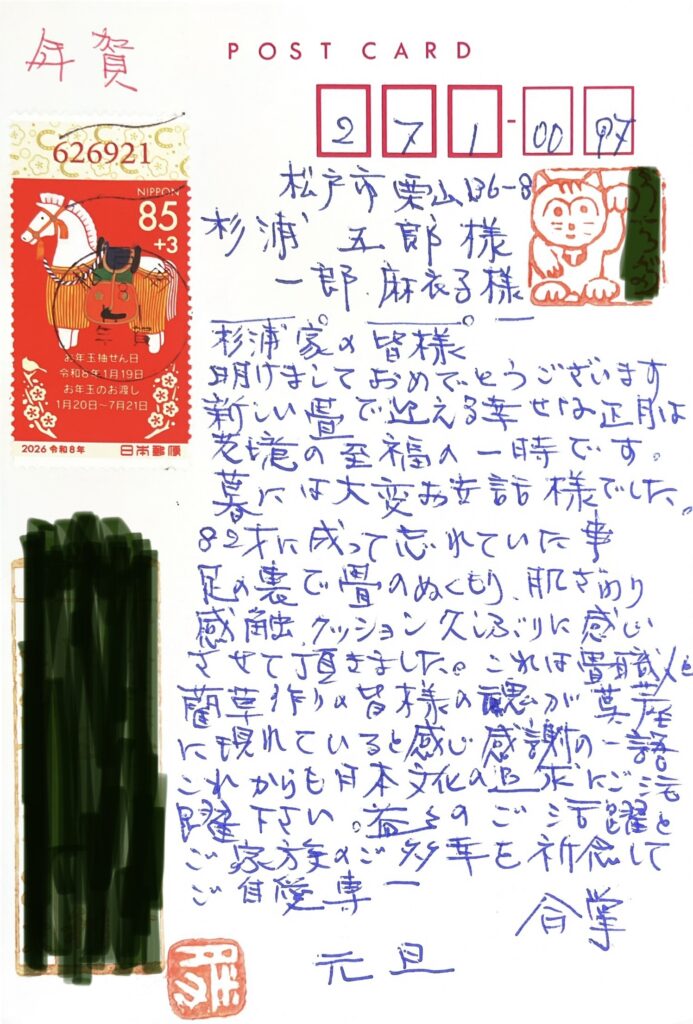 年賀
POST CARD
271-0097
626921
NIPPON
85
+3
お年玉抽せん日
令和8年1月19日
お年玉のお渡し
1月20日〜7月21日
2026 令和8年
日本郵便
松戸市栗山136-8
杉浦 五郎様
一郎 麻衣子様
杉浦家の皆様
明けましておめでとうございます
新しい畳で迎える幸せなお正月は
老境の至福の一時です。
暮には大変お世話様でした。
82才に成って忘れていた事
足の裏で畳のぬくもり、肌ざわり
感触、クッション久しぶりに感じ
させて頂きました。これは畳職人と
藺草作りの皆様の魂が茣蓙
に現れていると感じ感謝の一語
これからも日本文化の追求にご活
躍下さい。益々のご活躍と
ご家族のご多幸を祈念して
ご自愛専一
合掌
元旦